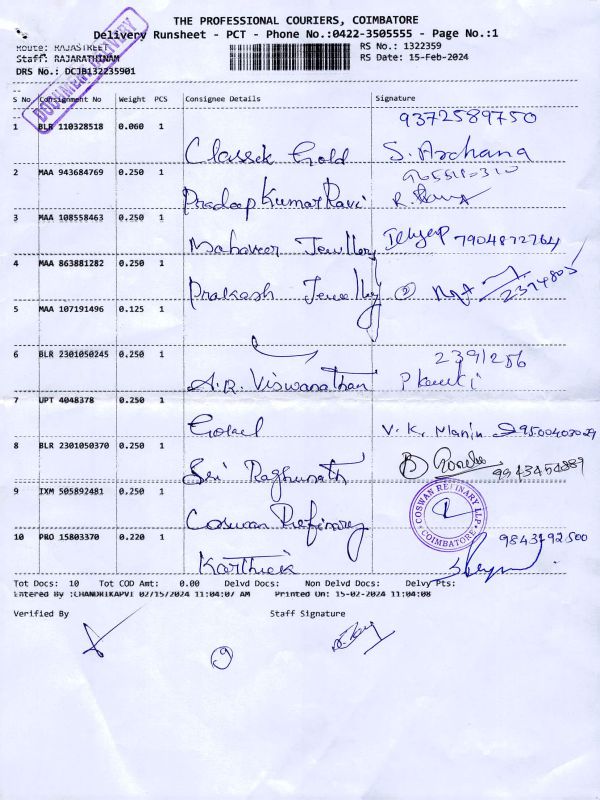 THE PROFESSIONAL COURIERS, COIMBATORE
Delivery Runsheet - PCT - Phone No.:0422-3505555 - Page No.:1
Route: RAJASTREET
RS No.: 1322359
Staff: RAJARATHINAM
RS Date: 15-Feb-2024
DRS No.: DCJB132235901
DOCUMENT DELIVERY
S No Consignment No Weight PCS Consignee Details Signature
1 BLR 110328518 0.060 1 Classek Gold 9372589750 S. Archana
2 MAA 943684769 0.250 1 Pradeep Kumar Ravi R.
3 MAA 108558463 0.250 1 Mahaveer Jewllery 7904872764
4 MAA 863881282 0.250 1 Prakash Jewellry 2394805
5 MAA 107191496 0.125 1
6 BLR 2301050245 0.250 1 A.R. Viswanathan 2391256
7 UPT 4048378 0.250 1 V. K. Manin 9500403029
8 BLR 2301050370 0.250 1 Sri Raghunath 9943454889
9 IXM 505892481 0.250 1 Coswan Refinery COSWAN REFINARY LLP COIMBATORE
10 PRO 15803370 0.220 1 Karthick 9843192500
Tot Docs: 10 Tot COD Amt: 0.00 Delvd Docs: Non Delvd Docs: Delvy Pts:
Entered By :CHANDRIKAPVI 02/15/2024 11:04:07 AM Printed On: 15-02-2024 11:04:08
Verified By Staff Signature
9